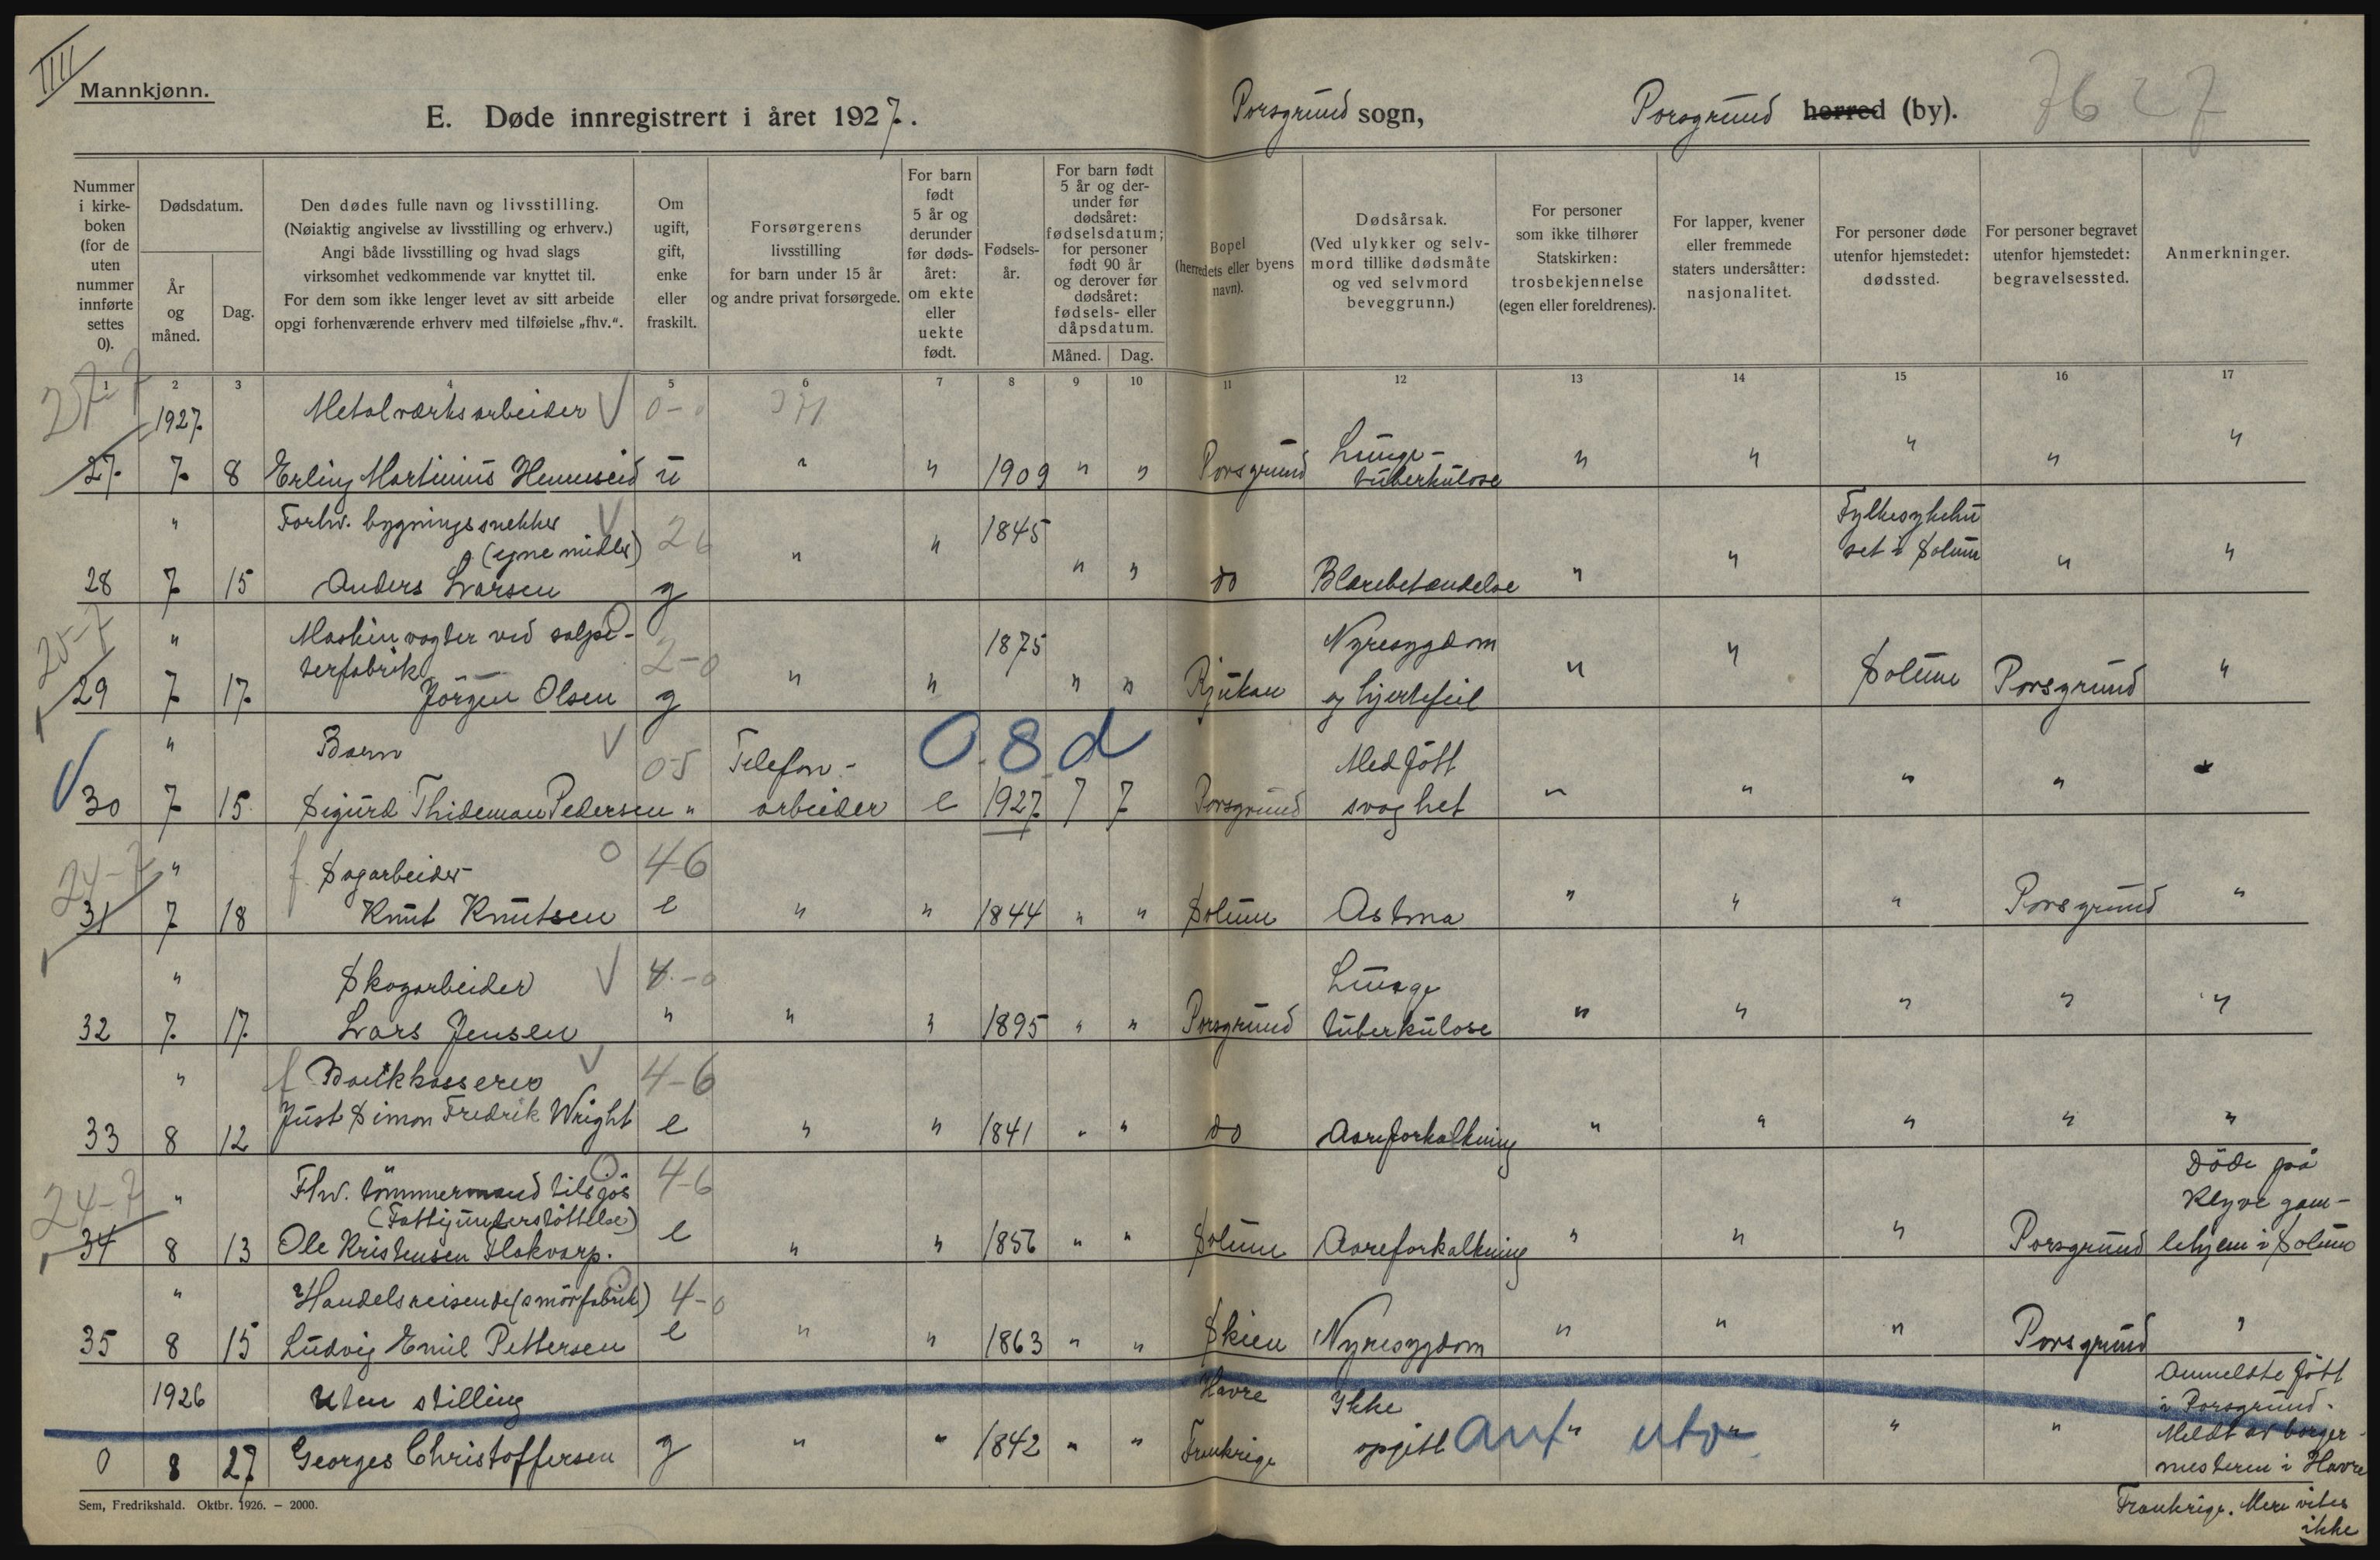 IIII
Mannkjønn.
E. Døde innregistrert i året 1927.
Porsgrund sogn,
Porsgrund herred (by).
7627
Nummer i kirkeboken (for de uten nummer innførte settes 0).
Dødsdatum.
År og måned.
Dag.
Den dødes fulle navn og livsstilling.
(Nøiaktig angivelse av livsstilling og erhverv.)
Angi både livsstilling og hvad slags
virksomhet vedkommende var knyttet til.
For dem som ikke lenger levet av sitt arbeide
opgi forhenværende erhverv med tilføielse „fhv.“.
Om ugift, gift, enke eller fraskilt.
Forsørgerens livsstilling
for barn under 15 år
og andre privat forsørgede.
For barn født 5 år og derunder før dødsåret: om ekte eller uekte født.
Fødselsår.
For barn født 5 år og derunder før dødsåret: fødselsdatum; for personer født 90 år og derover før dødsåret: fødsels- eller dåpsdatum.
Måned. Dag.
Bopel
(herredets eller byens navn).
Dødsårsak.
(Ved ulykker og selvmord tillike dødsmåte og ved selvmord beveggrunn.)
For personer som ikke tilhører Statskirken: trosbekjennelse (egen eller foreldrenes).
For lapper, kvener eller fremmede staters undersåtter: nasjonalitet.
For personer døde utenfor hjemstedet: dødssted.
For personer begravet utenfor hjemstedet: begravelsessted.
Anmerkninger.
1 2 3 4 5 6 7 8 9 10 11 12 13 14 15 16 17
1927 Metalværksarbeider 0-0
27 7 8 Erling Martinius Hennseid u " " 1909 " " Porsgrund Lunge-tuberkulose " " " " "
" Forhv. bygningssnekker (egne midler) 26
28 7 15 Anders Larsen g " " 1845 " " do Blærebetændelse " " Fylkesykehuset i Solum " "
" Maskinvagter ved salpeterfabrik 2-0
29 7 17 Jörgen Olsen g " " 1875 " " Rjukan Nyresygdom og hjertefeil " " Solum Porsgrund "
" Barn 05 Telefon- 0.8.d
30 7 15 Sigurd Thideman Pedersen " arbeider e 1927 7 7 Porsgrund Medfött svaghet " " " "
24-7 " f. Sagarbeider 4-6
31 7 18 Knut Knutsen e " " 1844 " " Solum Astma " " " Porsgrund "
" Skogarbeider 4-0
32 7 17 Lars Jensen " " " 1895 " " Porsgrund Lunge tuberkulose " " " " "
" f Bankkasserer 4-6
33 8 12 Just Simon Fredrik Wright e " " 1841 " " do Aareforkalkning " " " " "
24-7 " Fhv. tömmermand tilsjös 4-6
(Fattigunderstöttelse)
34 8 13 Ole Kristensen Flakvarp. e " " 1856 " " Solum Aareforkalkning " " " Porsgrund Döde på Klyve gamlehjem i Solum
" Handelsreisende (smörfabrik) 4-0
35 8 15 Ludvig Emil Pettersen e " " 1863 " " Skien Nyresygdom " " " Porsgrund "
1926 Uten stilling
0 8 27 Georges Christoffersen g " " 1842 " " Havre Frankrige Ikke opgitt " " " " Anmeldte fött i Porsgrund. Meldt av borgermesteren i Havre
Frankrige. Mere vites ikke
Sem, Fredrikshald. Oktbr. 1926. — 2000.